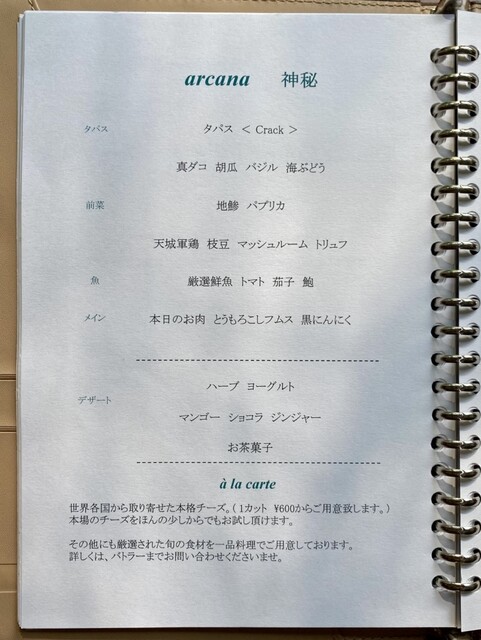 arcana 神秘
タパス タパス < Crack >
真ダコ 胡瓜 バジル 海ぶどう
前菜 地鯵 パプリカ
天城軍鶏 枝豆 マッシュルーム トリュフ
魚 厳選鮮魚 トマト 茄子 鮑
メイン 本日のお肉 とうもろこしフムス 黒にんにく
ハーブ ヨーグルト
デザート
マンゴー ショコラ ジンジャー
お茶菓子
à la carte
世界各国から取り寄せた本格チーズ。(1カット ¥600からご用意致します。)
本場のチーズをほんの少しからでもお試し頂けます。
その他にも厳選された旬の食材を一品料理でご用意しております。
詳しくは、バトラーまでお問い合わせくださいませ。